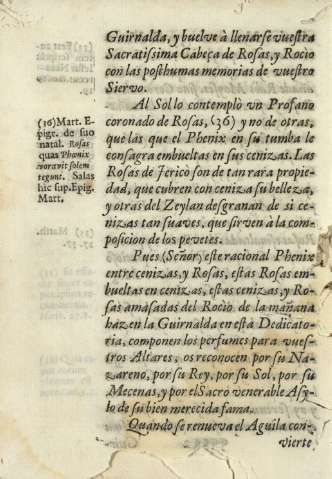 Guirnalda, y buelve à llenarse vuestra
Sacratissima Cabeça de Rosas, y Rocio
con las posthumas memorias de vuestro
Siervo.
Al Sol lo contemplo vn Profano
coronado de Rosas, (36) y no de otras,
que las que el Phenix en su tumba le
consagra embueltas en sus cenizas. Las
Rosas de Jericó son de tan rara propie-
dad, que cubren con ceniza su belleza,
y otras del Zeylan desgranan de si ce-
nizas tan suaves, que sirven à la com-
posicion de los pevetes.
Pues (Señor) este racional Phenix
entre cenizas, y Rosas, estas Rosas em-
bueltas en cenizas, estas cenizas, y Ro-
sas amasadas del Rocio de la mañana
haz en la Guirnalda en esta Dedicato-
ria, componen los perfumes para vues-
tros Altares, os reconocen por su Na-
zareno, por su Rey, por su Sol, por su
Mecenas, y por el Sacro venerable Asy-
lo de su bien merecida fama.
Quando se renueva el Aguila con-
vierte
(36) Mart. E-
pigr. de suo
natal. Rosas
quas Phœnix
voravit solem
tegunt. Salas
hic sup. Epig.
Mart.